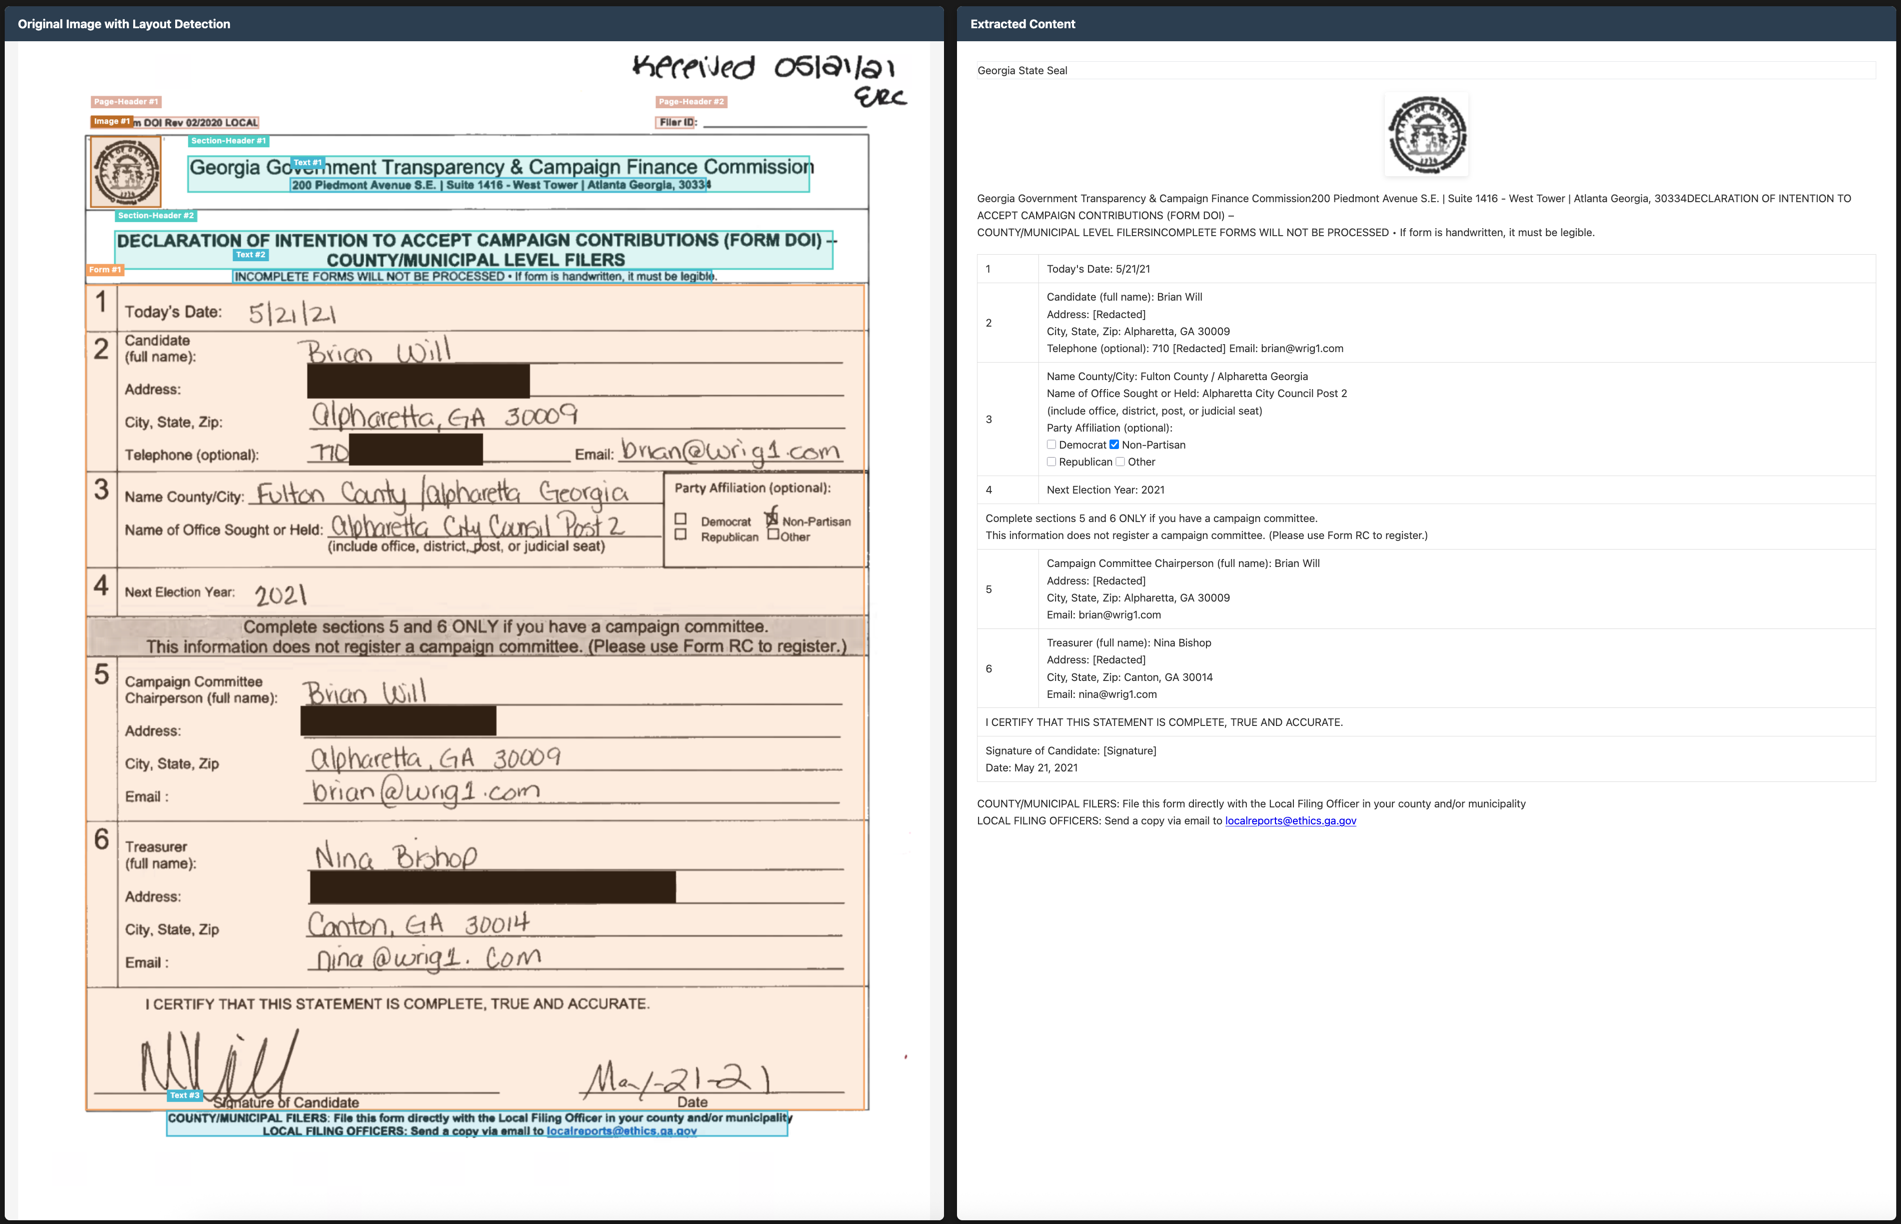 Original Image with Layout Detection
Received 05/21/21
ERC
Page-Header #1
Page-Header #2
Image #1
m DOI Rev 02/2020 LOCAL
Filer ID:
Section-Header #1
Text #1
Georgia Government Transparency & Campaign Finance Commission
200 Piedmont Avenue S.E. | Suite 1416 - West Tower | Atlanta Georgia, 30334
Section-Header #2
DECLARATION OF INTENTION TO ACCEPT CAMPAIGN CONTRIBUTIONS (FORM DOI) –
Text #2
COUNTY/MUNICIPAL LEVEL FILERS
Form #1
INCOMPLETE FORMS WILL NOT BE PROCESSED • If form is handwritten, it must be legible.
1 Today's Date: 5/21/21
2 Candidate
(full name): Brian Will
Address:
City, State, Zip: Alpharetta, GA 30009
Telephone (optional): 770 Email: brian@wrig1.com
3 Name County/City: Fulton Canty /alpharetta Georgia
Party Affiliation (optional):
Name of Office Sought or Held: Alpharetta City Counsil Post 2
Democrat Non-Partisan
Republican Other
(include office, district, post, or judicial seat)
4 Next Election Year: 2021
Complete sections 5 and 6 ONLY if you have a campaign committee.
This information does not register a campaign committee. (Please use Form RC to register.)
5 Campaign Committee
Chairperson (full name): Brian Will
Address:
City, State, Zip Alpharetta, GA 30009
Email : brian@wrig1.com
6 Treasurer
(full name): Nina Bishop
Address:
City, State, Zip Canton, GA 30014
Email : nina@wrig1.com
I CERTIFY THAT THIS STATEMENT IS COMPLETE, TRUE AND ACCURATE.
May-21-21
Text #3
Signature of Candidate Date
COUNTY/MUNICIPAL FILERS: File this form directly with the Local Filing Officer in your county and/or municipality
LOCAL FILING OFFICERS: Send a copy via email to localreports@ethics.ga.gov
Extracted Content
Georgia State Seal
Georgia Government Transparency & Campaign Finance Commission200 Piedmont Avenue S.E. | Suite 1416 - West Tower | Atlanta Georgia, 30334DECLARATION OF INTENTION TO
ACCEPT CAMPAIGN CONTRIBUTIONS (FORM DOI) –
COUNTY/MUNICIPAL LEVEL FILERSINCOMPLETE FORMS WILL NOT BE PROCESSED • If form is handwritten, it must be legible.
1 Today's Date: 5/21/21
2 Candidate (full name): Brian Will
Address: [Redacted]
City, State, Zip: Alpharetta, GA 30009
Telephone (optional): 710 [Redacted] Email: brian@wrig1.com
3 Name County/City: Fulton County / Alpharetta Georgia
Name of Office Sought or Held: Alpharetta City Council Post 2
(include office, district, post, or judicial seat)
Party Affiliation (optional):
Democrat Non-Partisan
Republican Other
4 Next Election Year: 2021
Complete sections 5 and 6 ONLY if you have a campaign committee.
This information does not register a campaign committee. (Please use Form RC to register.)
5 Campaign Committee Chairperson (full name): Brian Will
Address: [Redacted]
City, State, Zip: Alpharetta, GA 30009
Email: brian@wrig1.com
6 Treasurer (full name): Nina Bishop
Address: [Redacted]
City, State, Zip: Canton, GA 30014
Email: nina@wrig1.com
I CERTIFY THAT THIS STATEMENT IS COMPLETE, TRUE AND ACCURATE.
Signature of Candidate: [Signature]
Date: May 21, 2021
COUNTY/MUNICIPAL FILERS: File this form directly with the Local Filing Officer in your county and/or municipality
LOCAL FILING OFFICERS: Send a copy via email to localreports@ethics.ga.gov